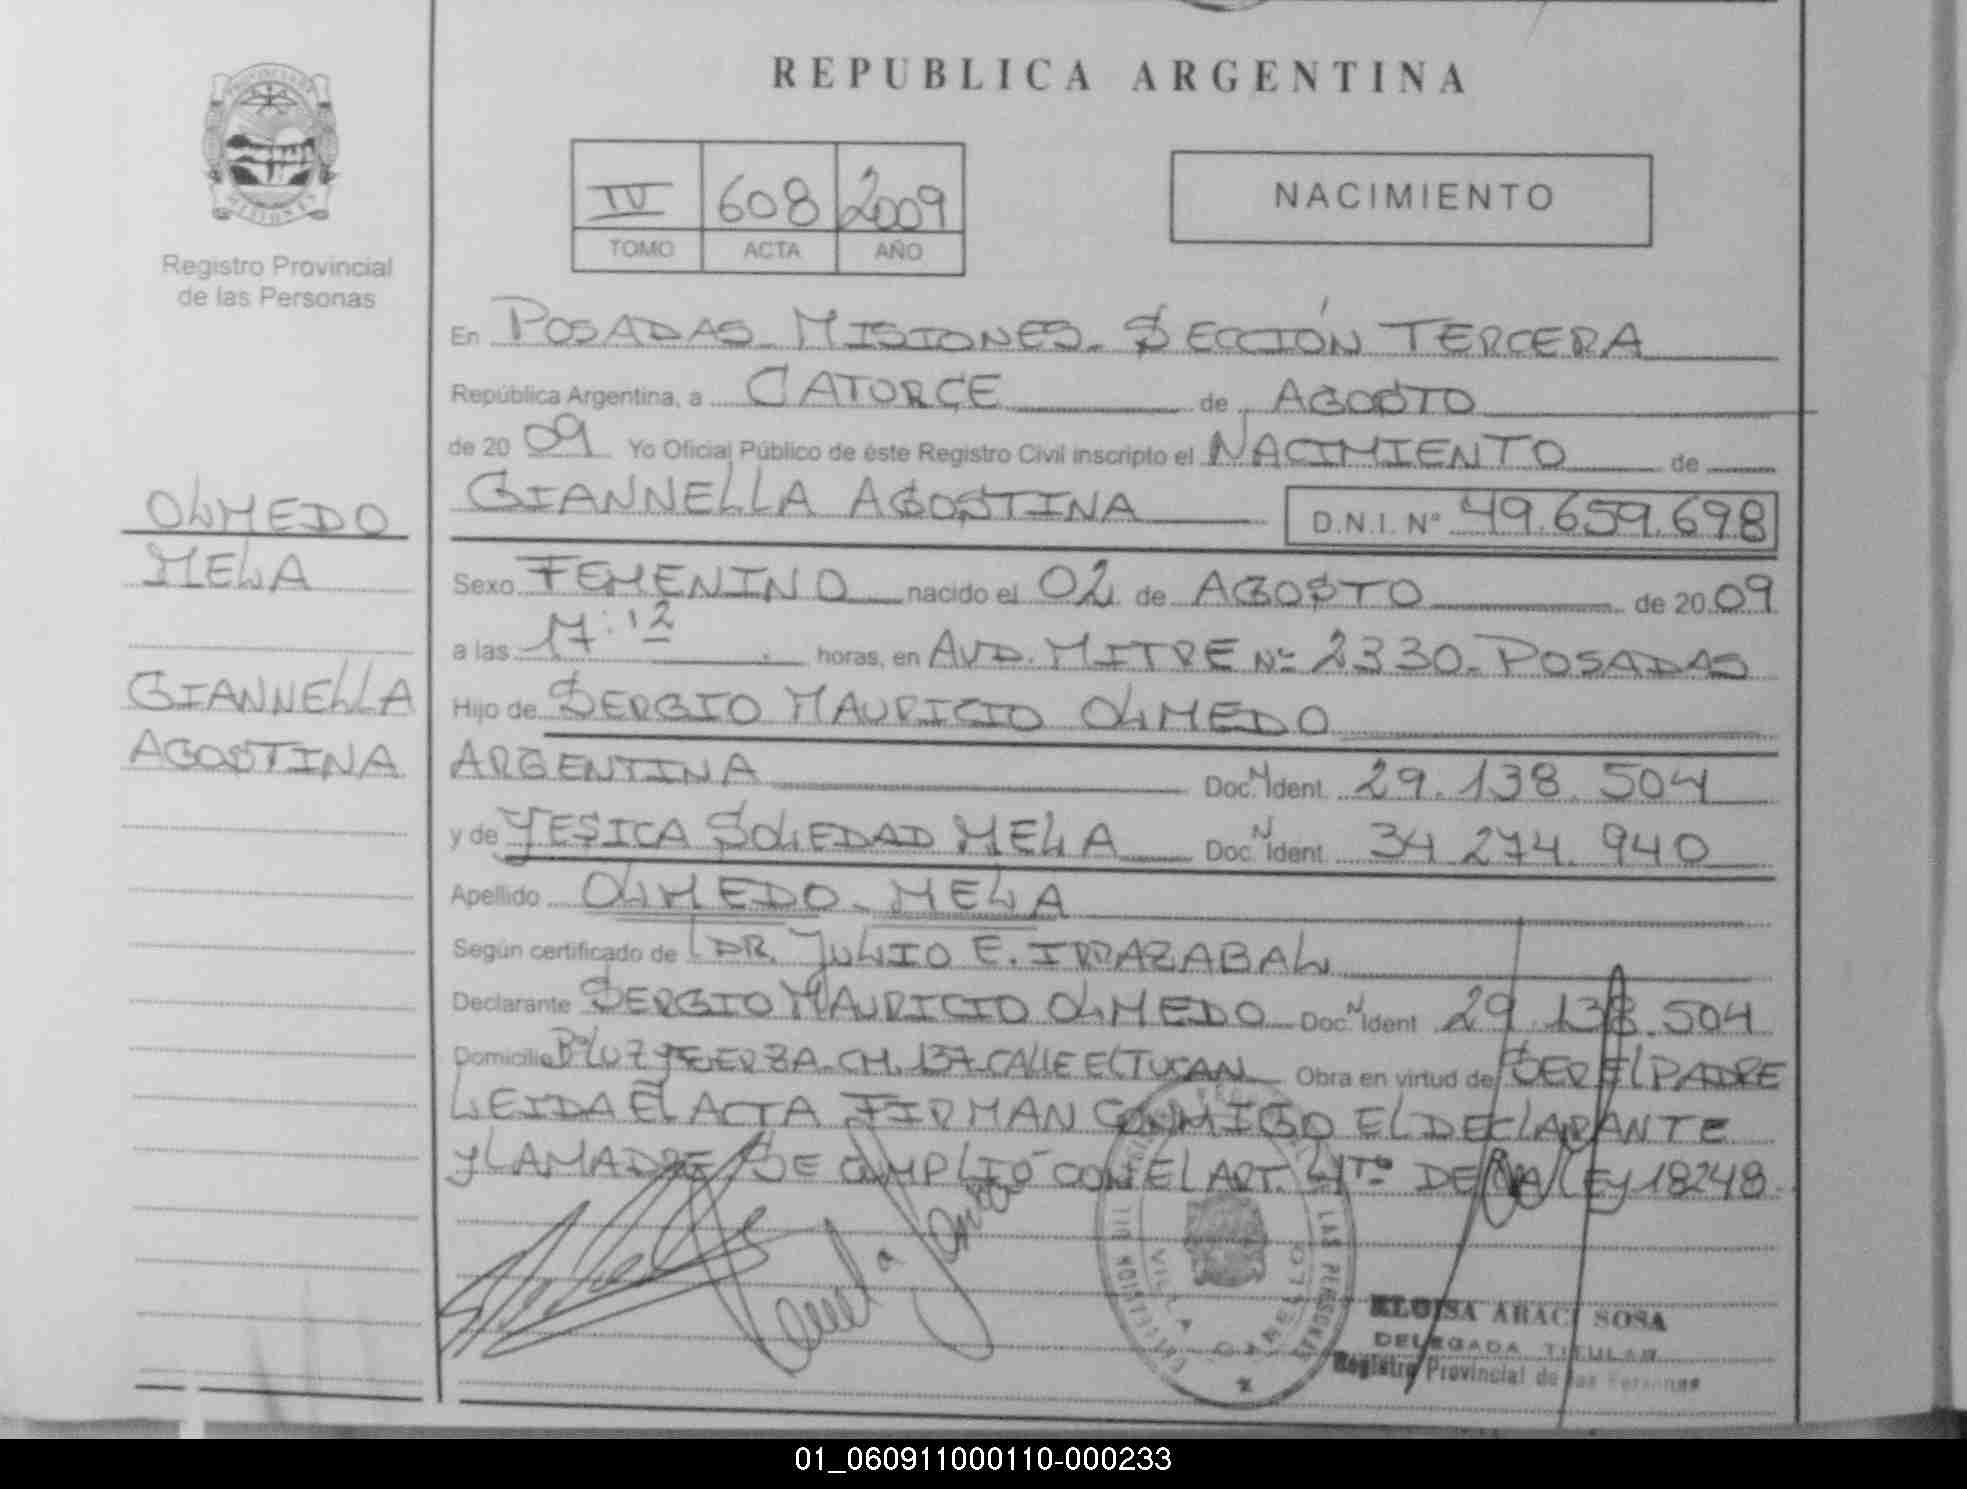 REPUBLICA ARGENTINA
IV 608 2009
TOMO ACTA AÑO
NACIMIENTO
Registro Provincial
de las Personas
OLMEDO
MELA
GIANNELLA
AGOSTINA
En POSADAS MISIONES. SECCIÓN TERCERA
República Argentina, a CATORCE de AGOSTO
de 2009 Yo Oficial Público de éste Registro Civil inscripto el NACIMIENTO de
GIANNELLA AGOSTINA D.N.I. Nº 49.659.698
Sexo FEMENINO nacido el 02 de AGOSTO de 2009
a las 17:12 horas, en AVD. MITRE Nº 2330. POSADAS
Hijo de SERGIO MAURICIO OLMEDO
ARGENTINA Doc. N Ident. 29.138.504
y de YESICA SOLEDAD MELA Doc. N Ident. 34.274.940
Apellido OLMEDO. MELA
Según certificado de DR. JULIO E. IRRAZABAL
Declarante SERGIO MAURICIO OLMEDO Doc. N Ident 29.138.504
Domicilio CH. 137. CALLE EL TUCAN Obra en virtud de SER EL PADRE
LEIDA EL ACTA FIRMAN CONMIGO EL DECLARANTE
Y LA MADRE SE CUMPLIÓ CON EL ART. 4TO DE LA LEY 18248.
VILLA CABELLO
LAS PERSONAS
ELOISA ARACI SOSA
DELEGADA TITULAR
Registro Provincial de las Personas
01_060911000110-000233